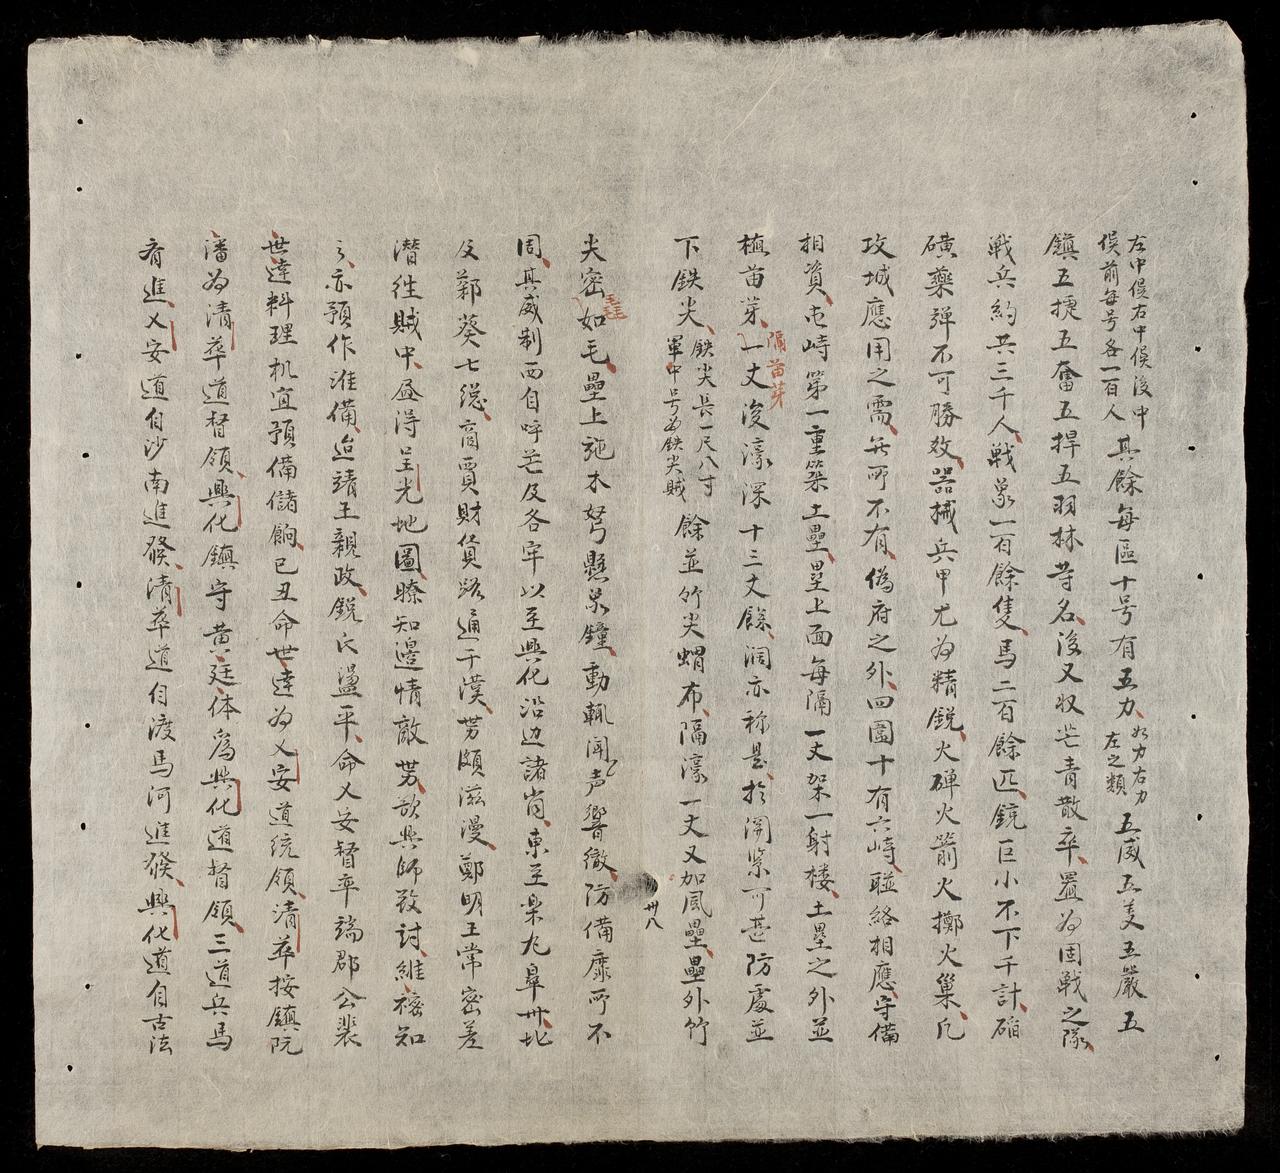 左中候右中候後中
候前每号各一百人
其餘每區十号有五力
如力右力
左之類
五威五美五嚴五
鎮五捷五奮五捍五羽林等名後又収芒青散卒置為固戰之隊
戰兵約共三千人戰象一百餘隻馬二百餘匹銃巨小不下千計硝
磺藥弹不可勝数器械兵甲尤為精銳火碑火箭火擲火巢凡
攻城應用之需無所不有偽府之外四圍十有六峙聯絡相應守備
相資屯峙第一重築土壘壘上面每隔一丈架一射楼土壘之外並
植苗芽一丈浚濠深十三丈餘濶亦称是於関紧可甚防處並
隔苗芽
下鉄尖
鉄尖長一尺八寸
軍中号為鉄尖賊
餘並竹尖蝟布隔濠一丈又加風壘壘外竹
卅八
尖密如毛壘上施木弩懸泉鐘動輒聞声響徹防備靡所不
周其威制西自呼芒及各牢以至興化沿边諸岗東至楽九皐州北
及鄚葵七總商賈財貨路通于漢势頗滋漫鄭明王常密差
潜徃賊中昼得呈光地圖瞭知邉情敵势欲興師致討維密知
之亦預作准備迨靖王親政銳民盪平命乂安督率端郡公裴
世達料理机宜預備儲餉已丑命世達為乂安道統領清華按鎮阮
潘為清華道督領興化鎮守黄廷体為興化道督領三道兵馬
脊進乂安道自沙南進發清華道自渡馬河進發興化道自古法